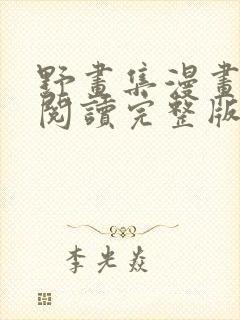 野畫集漫畫
閱讀完整版
李光焱